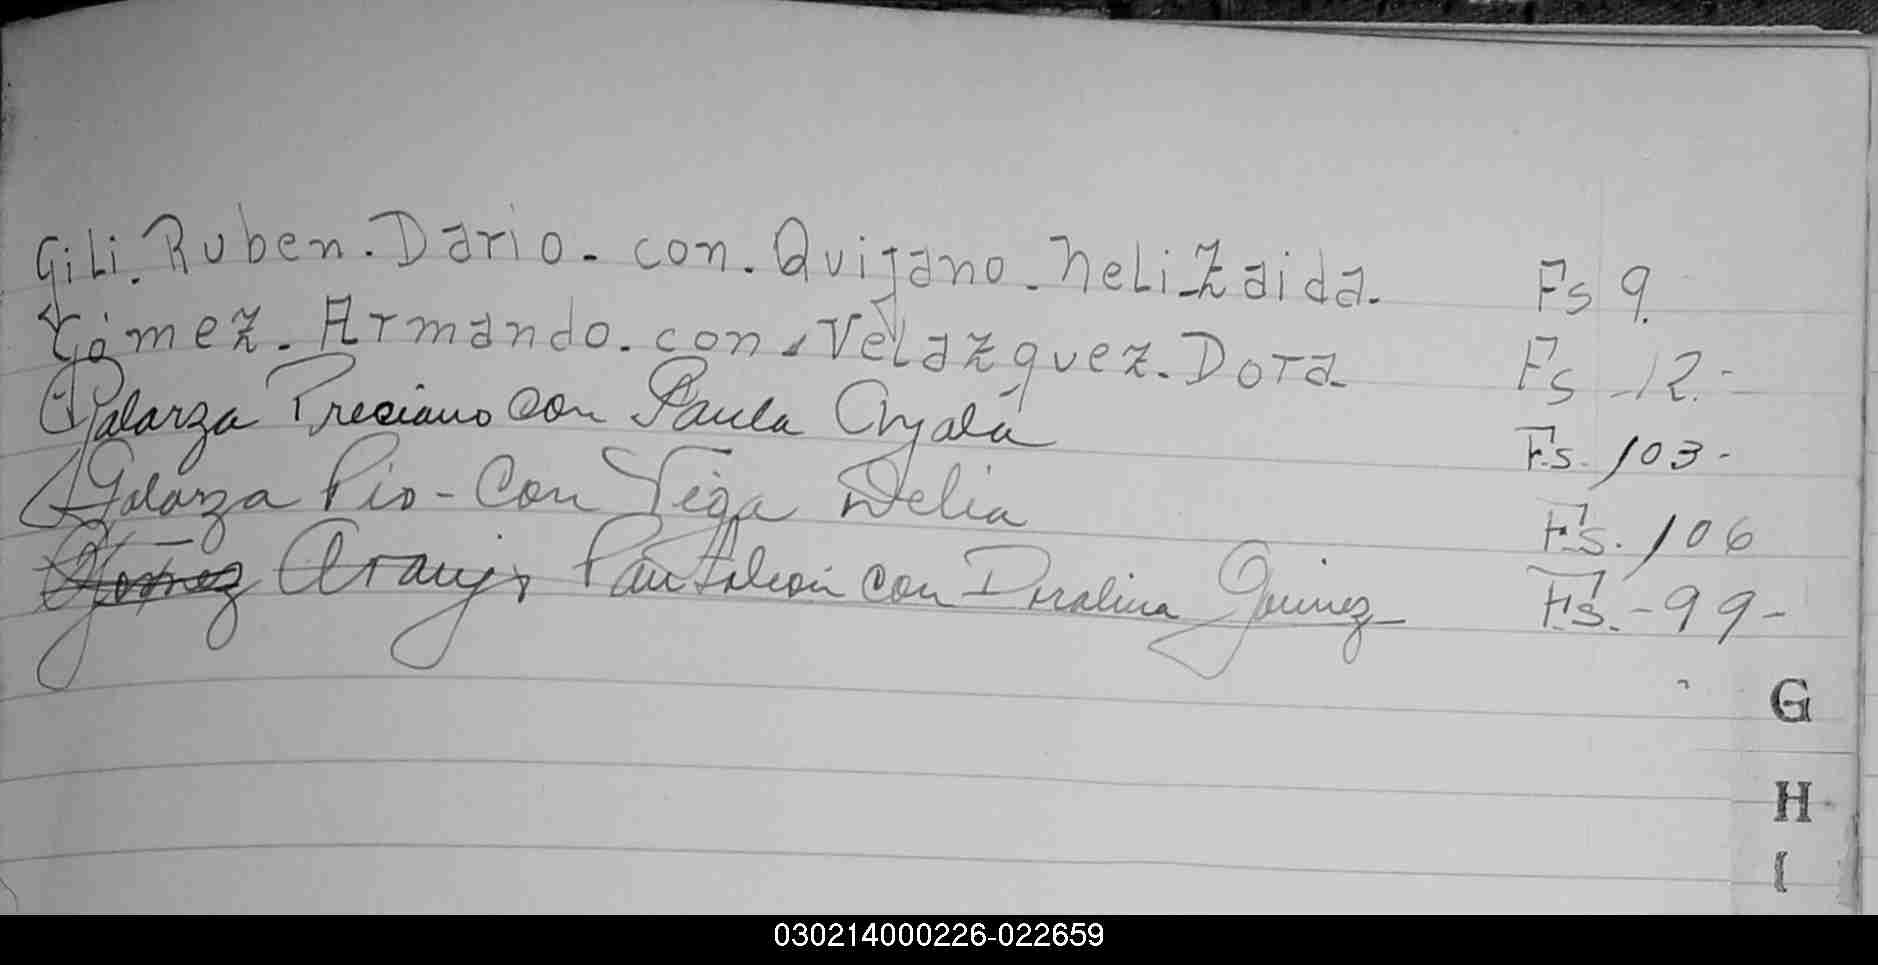 Gili. Ruben. Dario - con. Quijano - neli Zaida. Fs 9.
Gómez. Armando. con. Velazquez. Dora Fs 12. -
Galarza Preciano con Paula Ayala Fs. 103 -
Galarza Pio - Con Vega Delia Fs. 106
Gomez Araujo Pantaleon con Doralina Gomez - Fs. - 99 -
G
H
I
030214000226-022659